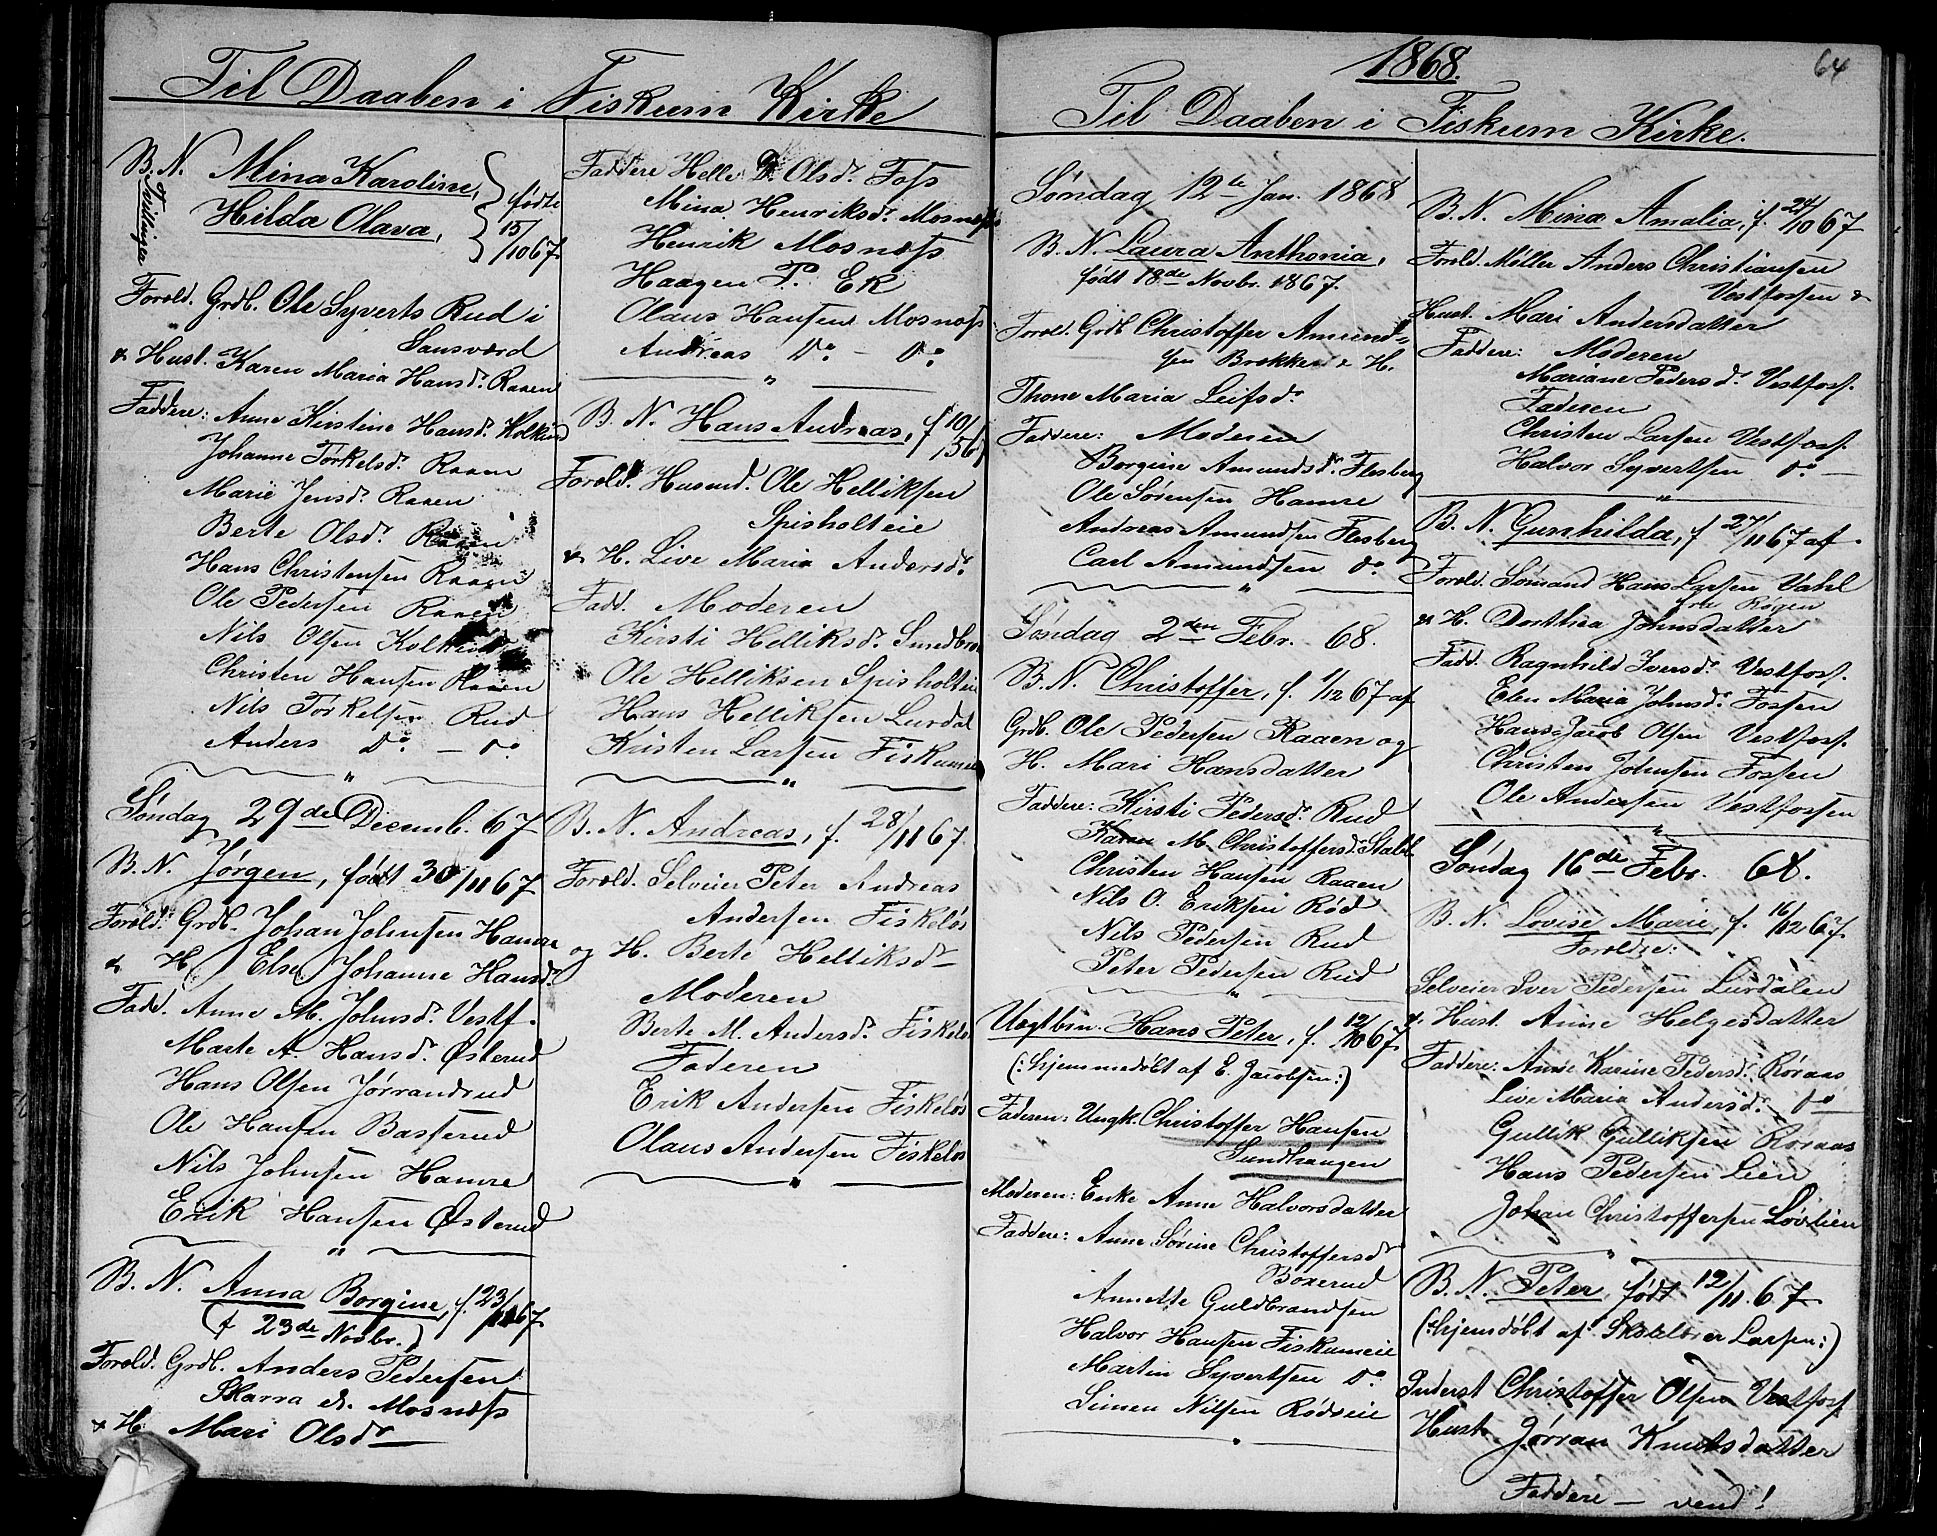 Til Daaben i Fiskum Kirke
B. N. Mina Karoline,
Hilda Olava,
Tvillinger
fødte
15/10 67.
Forøld. Grdb. Ole Syverts Rud i
Sansværd
& Hust. Karen Maria Hansd. Raaen
Faddere: Anne Kirstine Hansd. Kolkind
Johanne Torkelsd. Raaen
Marie Jensd. Raaen
Berte Olsd. Raaen
Hans Christensen Raaen
Ole Pedersen Raaen
Nils Olsen Kolkind
Christen Hansen Raaen
Nils Torkelsen Rud
Anders Do. — Do.
Søndag 29de Decemb. 67
B. N. Jørgen, født 30/11 67
Forøld. Grdb. Johan Johnsen Hamre
& H. Else Johanne Hansd.
Fadd. Anne M. Johnsd. Vestf.
Marte A. Hansd. Østerud
Hans Olsen Jørrandrud
Ole Hansen Basserud
Nils Johnsen Hamre
Erik Hansen Østerud
B. N. Anna Borgine, f. 23/11 67
(f 23de Novbr.)
Forøld. Grdb. Anders Pedersen
Skarra el. Mosnæss
& H. Mari Olsd.
Faddere Helle D. Olsd. Foss
Mina Henriksd. Mosnæss
Henrik Mosnæss
Haagen P. Ek
Olaus Hansen Mosnæss
Andreas Do. — Do.
B. N. Hans Andreas, f 10/5 67
Forøld. Husmd. Ole Helliksen
Spisholteie
& H. Live Maria Andersd.
Fadd. Moderen
Kirsti Helliksd. Sundbro
Ole Helliksen Spisholteie
Hans Helliksen Lurdal
Kristen Larsen Fiskumeie
B. N. Andreas, f. 28/11 67.
Forøld. Selveier Peter Andreas
Andersen Fiskeløs
og H. Berte Helliksd.
Moderen
Berte M. Andersd. Fiskeløs
Faderen
Erik Andersen Fiskeløs
Olaus Andersen Fiskeløs
1868.
64
Til Daaben i Fiskum Kirke.
Søndag 12te Jan. 1868
B. N. Laura Anthonia,
født 18de Novbr. 1867.
Forøld. Grdb Christoffer Amund-
sen Brokken & H.
Thone Maria Leifsd.
Faddere: Moderen
Borgine Amundsd. Flesberg
Ole Sørensen Hamre
Andreas Amundsen Flesberg
Carl Amundsen Do.
Søndag 2den Febr. 68.
B. N. Christoffer, f. 1/12 67 af
Grdb. Ole Pedersen Raaen og
H. Mari Hansdatter
Faddere: Kirsti Pedersd. Rud
Karen M. Christoffersd. Stabl.
Christen Hansen Raaen
Nils O. Eriksen Rød
Nils Pedersen Rud
Peter Pedersen Rud
Uegtbn. Hans Peter, f. 12/10 67.
(: hjemmedøbt af E. Jacobsen:)
Faderen: Ungk. Christoffer Hansen
Sundhaugen
Moderen: Enke Anne Halvorsdatter
Faddere: Anne Sørine Christoffersd.
Boxerud
Annette Guldbrandsen
Halvor Hansen Fiskumeie
Martin Syvertsen Do.
Simen Nilsen Rødseie
B. N. Mina Amalia, f. 24/10 67
Forøld. Møller Anders Christiansen
Vestfossen &
Hust. Mari Andersdatter
Faddere: Moderen
Mariane Pedersd. Vestfoss.
Faderen
Christen Larsen Vestfoss.
Halvor Syvertsen Do. —
B. N. Gunhilda, f 27/11 67 af
Forøld. Sømand Hans Larsen Vahl
Røgen
& H. Dorthea Johnsdatter
Fadd. Ragnhild Iversd. Vestfoss.
Elen Maria Johnsd. Fossen
Hans Jacob Olsen Vestfoss.
Christen Johnsen Fossen
Ole Andersen Vestfossen
Søndag 16de Febr. 68.
B. N. Lovise Marie, f. 16/12 67.
Forøldre:
Selveier Iver Pedersen Lurdalen
& Hust. Anne Helgesdatter
Faddere: Anne Karine Pedersd. Røraas
Live Maria Andersd. Do —
Gullik Gulliksen Røraas
Hans Pedersen Lien
Johan Christoffersen Løvlien
B. N. Peter, født 12/11. 67
(: hjemdøbt af Skolelærer Larsen:)
Inderst Christoffer Olsen Vestfoss
Hust. Jørran Knutsdatter
Faddere — vend!